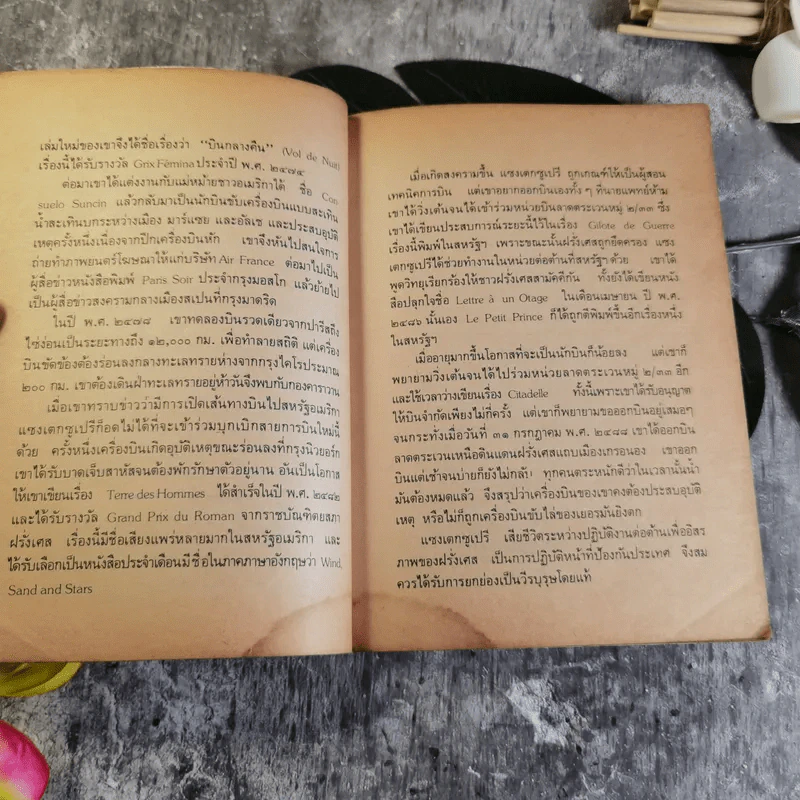 เล่มใหม่ของเขาจึงได้ชื่อเรื่องว่า "บินกลางคืน" (Vol de Nuit)
เรื่องนี้ได้รับรางวัล Grix Fémina ประจำปี พ.ศ. ๒๔๗๔
ต่อมาเขาได้แต่งงานกับแม่หม้ายชาวอเมริกาใต้ ชื่อ Con
suelo Suncin แล้วกลับมาเป็นนักบินขับเครื่องบินแบบสะเทิน
น้ำสะเทินบกระหว่างเมือง มาร์แซย และอัลเช และประสบอุบัติ
เหตุครั้งหนึ่งเนื่องจากปีกเครื่องบินหัก เขาจึงหันไปสนใจการ
ถ่ายทำภาพยนตร์โฆษณาให้แก่บริษัท Air France ต่อมาไปเป็น
ผู้สื่อข่าวหนังสือพิมพ์ Paris Soir ประจำกรุงมอสโก แล้วย้ายไป
เป็นผู้สื่อข่าวสงครามกลางเมืองสเปนที่กรุงมาดริด
ในปี พ.ศ. ๒๔๗๘ เขาทดลองบินรวดเดียวจากปารีสถึง
ไซ่ง่อนเป็นระยะทางถึง ๑๒,๐๐๐ กม. เพื่อทำลายสถิติ แต่เครื่อง
บินขัดข้องต้องร่อนลงกลางทะเลทรายห่างจากกรุงไคโรประมาณ
๒๐๐ กม. เขาต้องเดินฝ่าทะเลทรายอยู่ห้าวันจึงพบกับกองคาราวาน
เมื่อเขาทราบข่าวว่ามีการเปิดเส้นทางบินไปสหรัฐอเมริกา
แซงเตกซูเปรีก็อดไม่ได้ที่จะเข้าร่วมบุกเบิกสายการบินใหม่นี้
ด้วย ครั้งหนึ่งเครื่องบินเกิดอุบัติเหตุขณะร่อนลงที่กรุงนิวยอร์ก
เขาได้รับบาดเจ็บสาหัสจนต้องพักรักษาตัวอยู่นาน อันเป็นโอกาส
ให้เขาเขียนเรื่อง Terre des Hommes ได้สำเร็จในปี พ.ศ. ๒๔๘๒
และได้รับรางวัล Grand Prix du Roman จากราชบัณฑิตยสภา
ฝรั่งเศส เรื่องนี้มีชื่อเสียงแพร่หลายมากในสหรัฐอเมริกา และ
ได้รับเลือกเป็นหนังสือประจำเดือนมีชื่อในภาคภาษาอังกฤษว่า Wind,
Sand and Stars
เมื่อเกิดสงครามขึ้น แซงเตกซูเปรี ถูกเกณฑ์ให้เป็นผู้สอน
เทคนิคการบิน แต่เขาอยากออกบินเองทั้ง ๆ ที่นายแพทย์ห้าม
เขาได้วิ่งเต้นจนได้เข้าร่วมหน่วยบินลาดตระเวนหมู่ ๒/๓๓ ซึ่ง
เขาได้เขียนประสบการณ์ระยะนี้ไว้ในเรื่อง Gilote de Guerre
เรื่องนี้พิมพ์ในสหรัฐฯ เพราะขณะนั้นฝรั่งเศสถูกยึดครอง แซง
เตกซูเปรีได้ช่วยทำงานในหน่วยต่อต้านที่สหรัฐฯ ด้วย เขาได้
พูดวิทยุเรียกร้องให้ชาวฝรั่งเศสสามัคคีกัน ทั้งยังได้เขียนหนัง
สือปลุกใจชื่อ Lettre à un Otage ในเดือนเมษายน ปี พ.ศ.
๒๔๘๖ นั้นเอง Le Petit Prince ก็ได้ถูกตีพิมพ์ขึ้นอีกเรื่องหนึ่ง
ในสหรัฐฯ
เมื่ออายุมากขึ้นโอกาสที่จะเป็นนักบินก็น้อยลง แต่เขาก็
พยายามวิ่งเต้นจนได้ไปร่วมหน่วยลาดตระเวนหมู่ ๒/๓๓ อีก
และใช้เวลาว่างเขียนเรื่อง Citadelle ทั้งนี้เพราะเขาได้รับอนุญาต
ให้บินจำกัดเพียงไม่กี่ครั้ง แต่เขาก็พยายามขอออกบินอยู่เสมอๆ
จนกระทั่งเมื่อวันที่ ๓๑ กรกฎาคม พ.ศ. ๒๔๘๘ เขาได้ออกบิน
ลาดตระเวนเหนือดินแดนฝรั่งเศสแถบเมืองเกรอนอง เขาออก
บินแต่เช้าจนบ่ายก็ยังไม่กลับ ทุกคนตระหนักดีว่าในเวลานั้นน้ำ
มันต้องหมดแล้ว จึงสรุปว่าเครื่องบินของเขาคงต้องประสบอุบัติ
เหตุ หรือไม่ก็ถูกเครื่องบินขับไล่ของเยอรมันยิงตก
แซงเตกซูเปรี เสียชีวิตระหว่างปฏิบัติงานต่อต้านเพื่ออิสร
ภาพของฝรั่งเศส เป็นการปฏิบัติหน้าที่ป้องกันประเทศ จึงสม
ควรได้รับการยกย่องเป็นวีรบุรุษโดยแท้